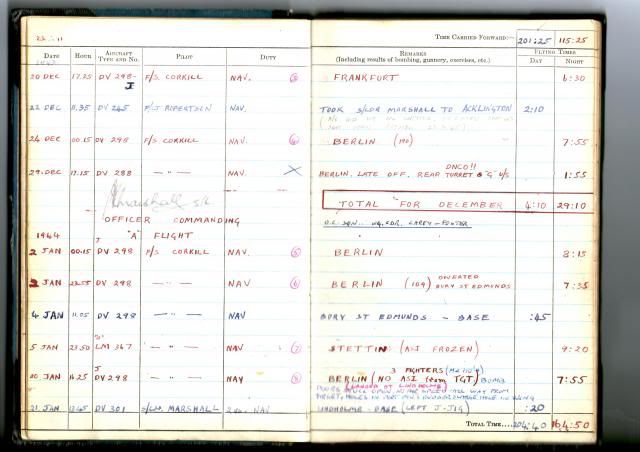 TIME CARRIED FORWARD:- 201:25 115:25
DATE HOUR AIRCRAFT TYPE AND NO. PILOT DUTY REMARKS (Including results of bombing, gunnery, exercises, etc.) FLYING TIMES DAY NIGHT
20 DEC 17.25 DV 298- J F/S. CORKILL NAV. FRANKFURT 6:30
22 DEC 11.35 DV 245 NAV. TOOK S/LDR MARSHALL TO ACKLINGTON 2:10
24 DEC 00.15 DV 298 F/S CORKILL NAV. BERLIN 7:55
DNCO!!
29. DEC 17.15 DV 288 — " — NAV. BERLIN, LATE OFF, REAR TURRET & "G" U/S 1:55
Marshall S/L
TOTAL FOR DECEMBER 4:10 29:10
OFFICER COMMANDING
O.C. SQN.
"A" FLIGHT
1944
2 JAN 00.15 J DV 298 F/S CORKILL NAV BERLIN 8:15
DIVERTED
2 JAN 23.55 DV 298 — " — NAV BERLIN BURY ST EDMUNDS 7:35
4 JAN 11.05 DV 298 — " — NAV BURY ST EDMUNDS - BASE :45
5 JAN 23.50 LM 367 — " — NAV STETTIN (ASI FROZEN) 9:20
3 FIGHTERS
20 JAN 16.25 J DV 298 — " — NAV BERLIN (NO ASI from TGT) BOMB 7:55
(LANDED AT LINDHOLME)
21. JAN 13.45 DV 301 S/LDR. MARSHALL NAV LINDHOLME - BASE (LEFT J-JIG) :20
TOTAL TIME 204:40 164:50